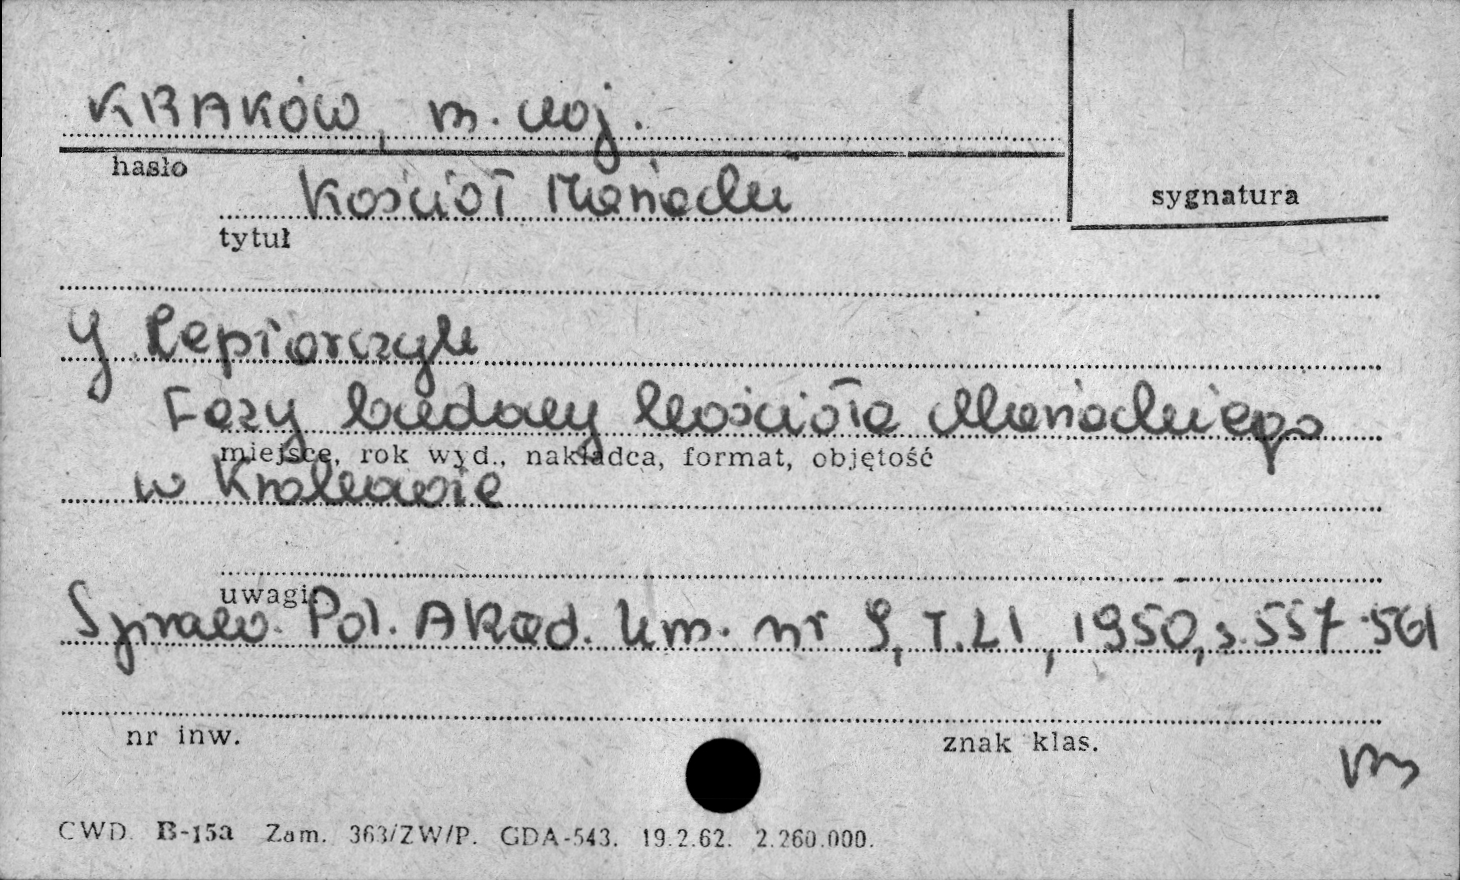 KRAKÓW, m. woj.
hasło
Kościół Mariacki
sygnatura
tytuł
J Lepiarczyk
Fazy budowy kościoła Mariackiego
miejsce, rok wyd., nakładca, format, objętość
w Krakowie
uwagi:
Spraw. Pol. Akad. Um. nr 9, T. LI, 1950, s. 557-561
nr inw.
znak klas.
CWD. B-15a Zam. 363/ZW/P. GDA-543. 19.2.62. 2.260.000.